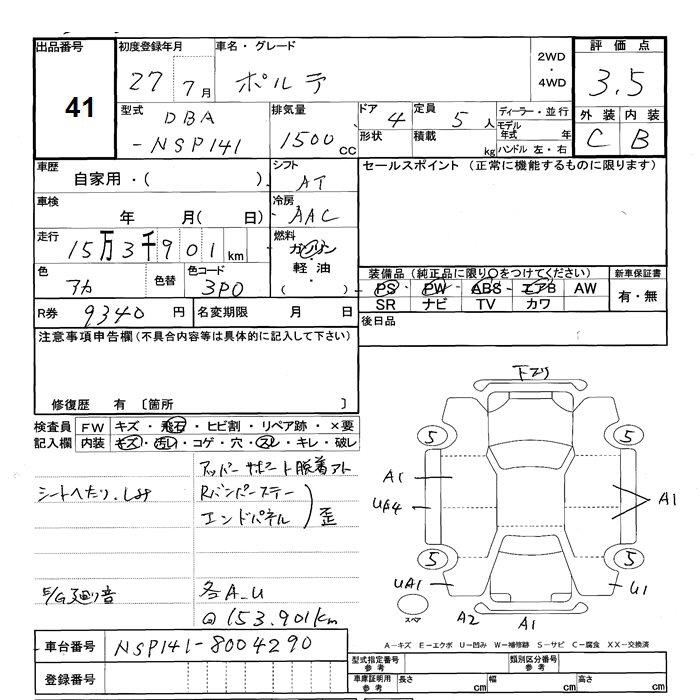 出品番号
41
初度登録年月
27 7月
車名・グレード
ポルテ
2WD
・
4WD
評価点
3.5
外装 内装
C B
型式
DBA
-NSP141
排気量
1500 cc
ドア 4
形状
定員 5 人
積載 kg
ディーラー・並行
モデル年式 年
ハンドル 左・右
車歴
自家用・( )
シフト
AT
セールスポイント (正常に機能するものに限ります)
車検
年 月( 日)
冷房
AAC
走行
15万3千901km
燃料
ガソリン
・
軽・油
( )
色
アカ
色替
色コード
3P0
装備品 (純正品に限り○をつけてください)
PS PW ABS エアB AW
SR ナビ TV カワ
新車保証書
有・無
R券 9340 円
名変期限 月 日
後日品
注意事項申告欄 (不具合内容等は具体的に記入して下さい)
修復歴 有 〔箇所 〕
検査員 FW キズ・飛石・ヒビ割・リペア跡・×要
記入欄 内装 キズ・汚れ・コゲ・穴・スレ・キレ・破レ
アッパーサポート脱着アト
シートヘたり.
Rバンパーステー
エンドパネル
歪
E/G廻り音
各A_U
@153.901km
車台番号 NSP141-8004290
登録番号
下スリ
5
5
A1
UA4
A1
5
5
UA1
U1
スペア
A2
A1
A−キズ E−エクボ U−凹み W−補修跡 S−サビ C−腐食 XX−交換済
型式指定番号
参考
類別区分番号
参考
車庫証明用
参考
長さ cm
幅 cm
高さ cm